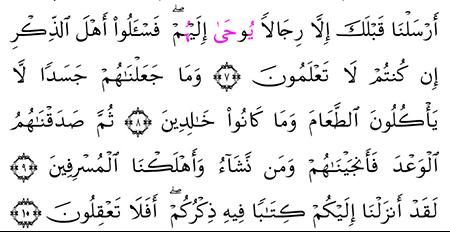 أَرۡسَلۡنَا قَبۡلَكَ إِلَّا رِجَالاً يُوحَىٰ إِلَيۡهُمُۥۖ فَسۡـَٔلُوٓاْ أَهۡلَ ٱلذِّكۡرِ
إِن كُنتُمۡ لَا تَعۡلَمُونَ ٧ وَمَا جَعَلۡنَٰهُمۡ جَسَدٗا لَّا
يَأۡكُلُونَ ٱلطَّعَامَ وَمَا كَانُواْ خَٰلِدِينَ ٨ ثُمَّ صَدَقۡنَٰهُمُ
ٱلۡوَعۡدَ فَأَنجَيۡنَٰهُمۡ وَمَن نَّشَآءُ وَأَهۡلَكۡنَا ٱلۡمُسۡرِفِينَ ٩
لَقَدۡ أَنزَلۡنَآ إِلَيۡكُمۡ كِتَٰبٗا فِيهِ ذِكۡرُكُمۡۖ أَفَلَا تَعۡقِلُونَ ١٠